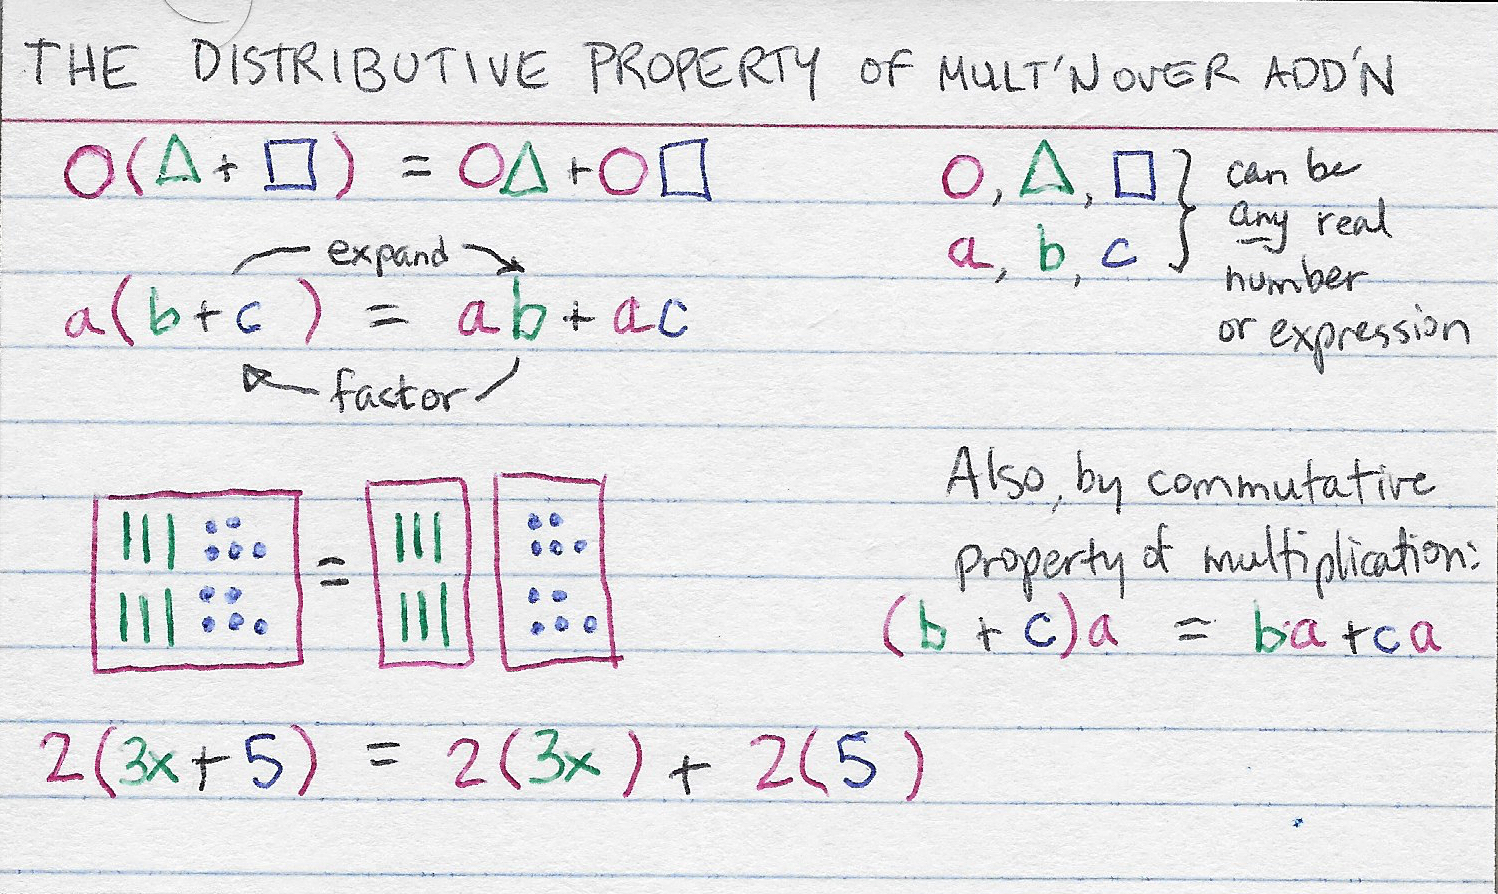 THE DISTRIBUTIVE PROPERTY OF MULT'N OVER ADD'N
○(△+□) = ○△+○□
○, △, □ } can be
any real
a, b, c
number
or expression
expand
a(b+c) = ab+ac
factor
Also, by commutative
property of multiplication:
(b+c)a = ba+ca
=
2(3x+5) = 2(3x)+2(5)